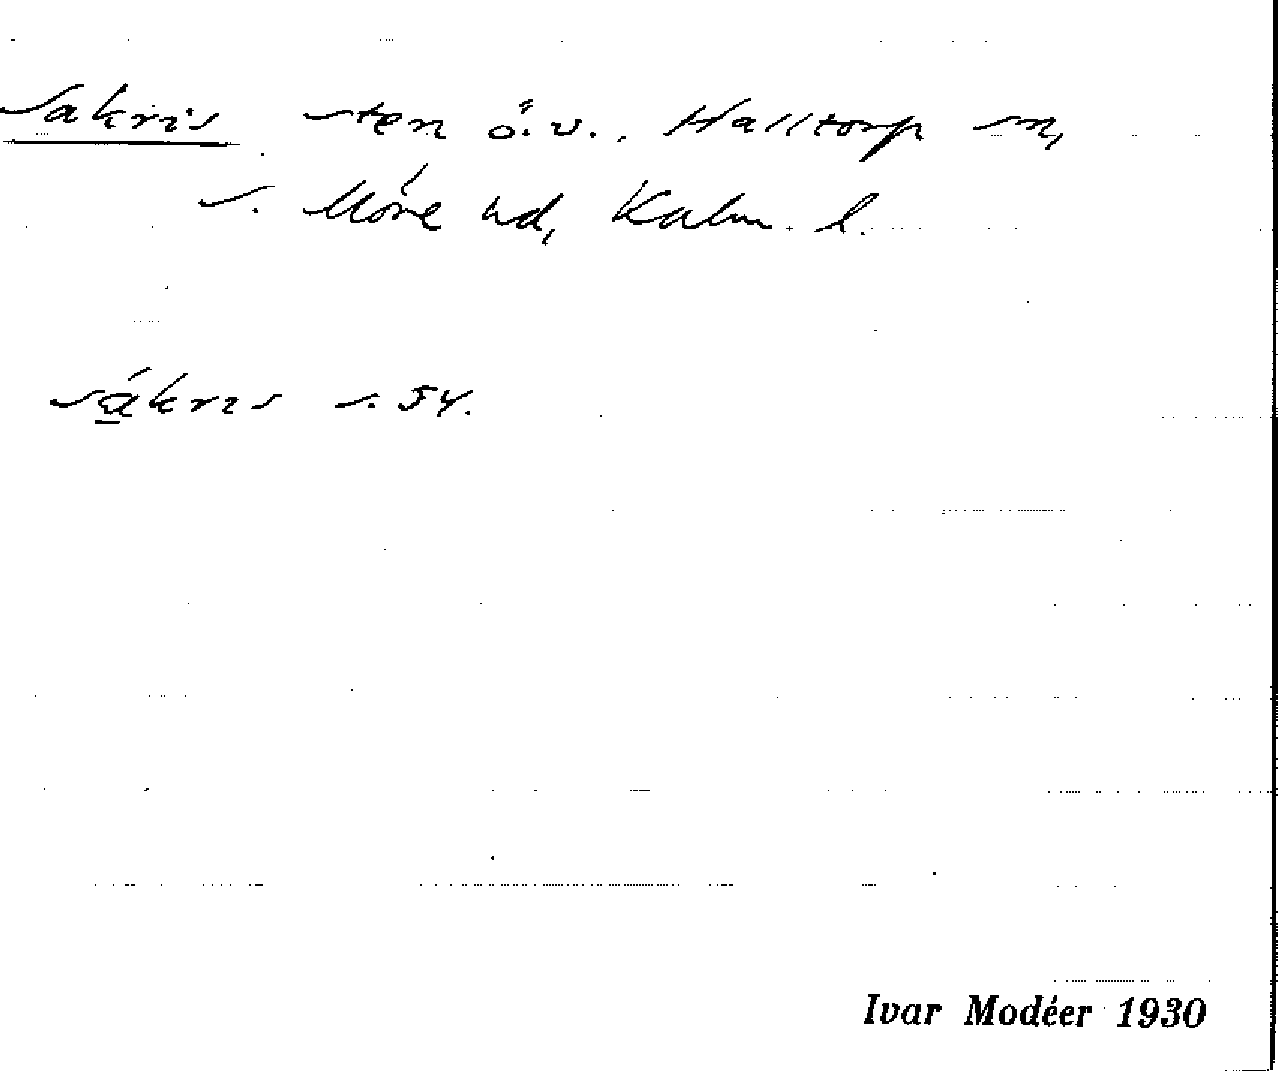 Sakris sten ö.v., Halltorp sn,
S. Möre hd, Kalm. l.
sákris s. 54.
Ivar Modéer 1930